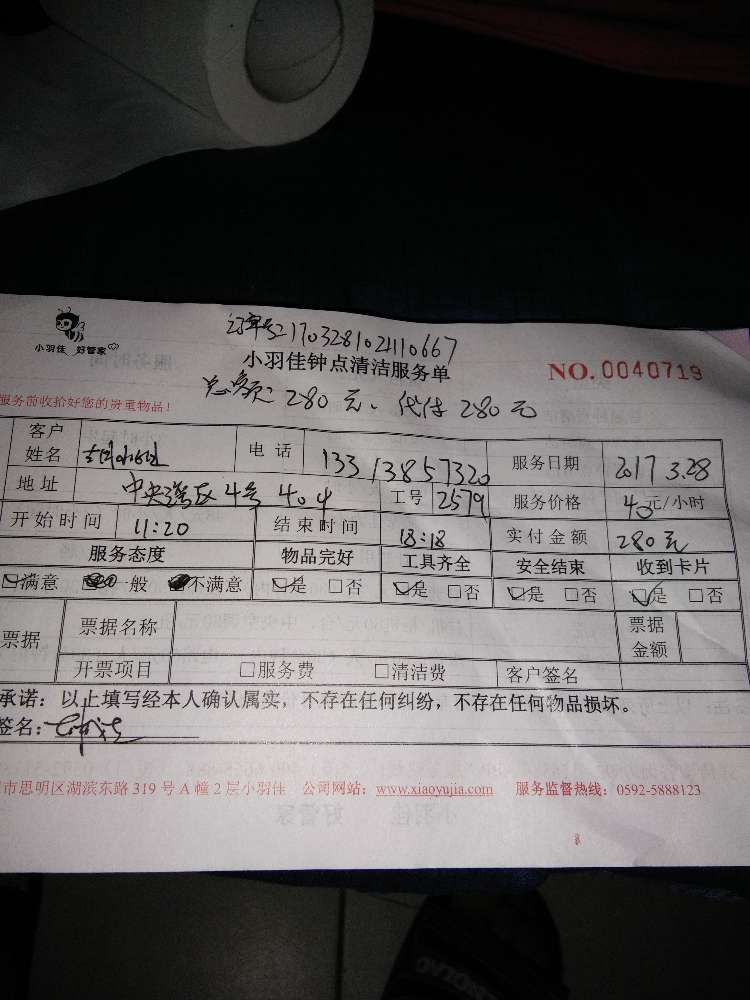 订单号21703281024110667
小羽佳 好管家
小羽佳钟点清洁服务单
NO. 0040719
总额:280元、代付280元
服务前收拾好您的贵重物品!
客户姓名 电话 13313857320 服务日期 2017 3.28
地址 中央湾区4号404 工号 2579 服务价格 40元/小时
开始时间 11:20 结束时间 18:18 实付金额 280元
服务态度 物品完好 工具齐全 安全结束 收到卡片
☑满意 一般 不满意 ☑是 □否 ☑是 □否 ☑是 □否 ☑是 □否
票据 票据名称 票据金额
开票项目 □服务费 □清洁费 客户签名
承诺:以上填写经本人确认属实,不存在任何纠纷,不存在任何物品损坏。
签名:
市思明区湖滨东路319号A幢2层小羽佳 公司网站:www.xiaoyujia.com 服务监督热线:0592-5888123